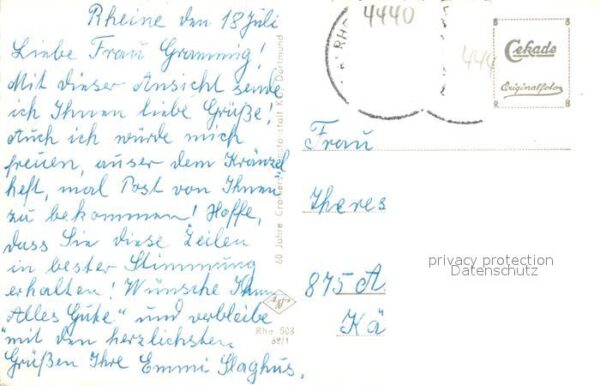 Rheine den 18 Juli
Liebe Frau Grammig!
Mit dieser Ansicht sende
ich Ihnen liebe Grüße!
Auch ich würde mich
freuen, auser dem Kränzel
heft, mal Post von Ihnen
zu bekommen! Hoffe,
dass Sie diese Zeilen
in bester Stimmung
erhalten! Wünsche Ihnen
"Alles Gute" und verbleibe
mit den herzlichsten
Grüßen Ihre Emmi Slaghus.
60 Jahre
KG, Dortmund
Rhe 508
68/1
4440
RH
Cekade
Originalfoto
Frau
Theres
875 A
Kä
privacy protection
Datenschutz